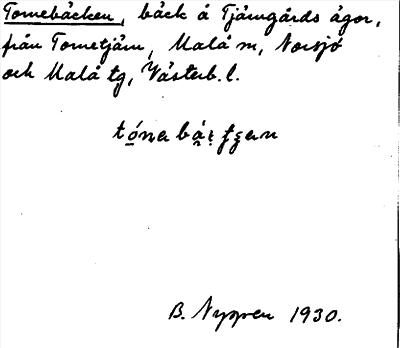 Tornebäcken, bäck å Tjärngårds ägor,
från Tornetjärn, Malå sn, Norsjö
och Malå tg, Västerb. l.
B. Nygren 1930.